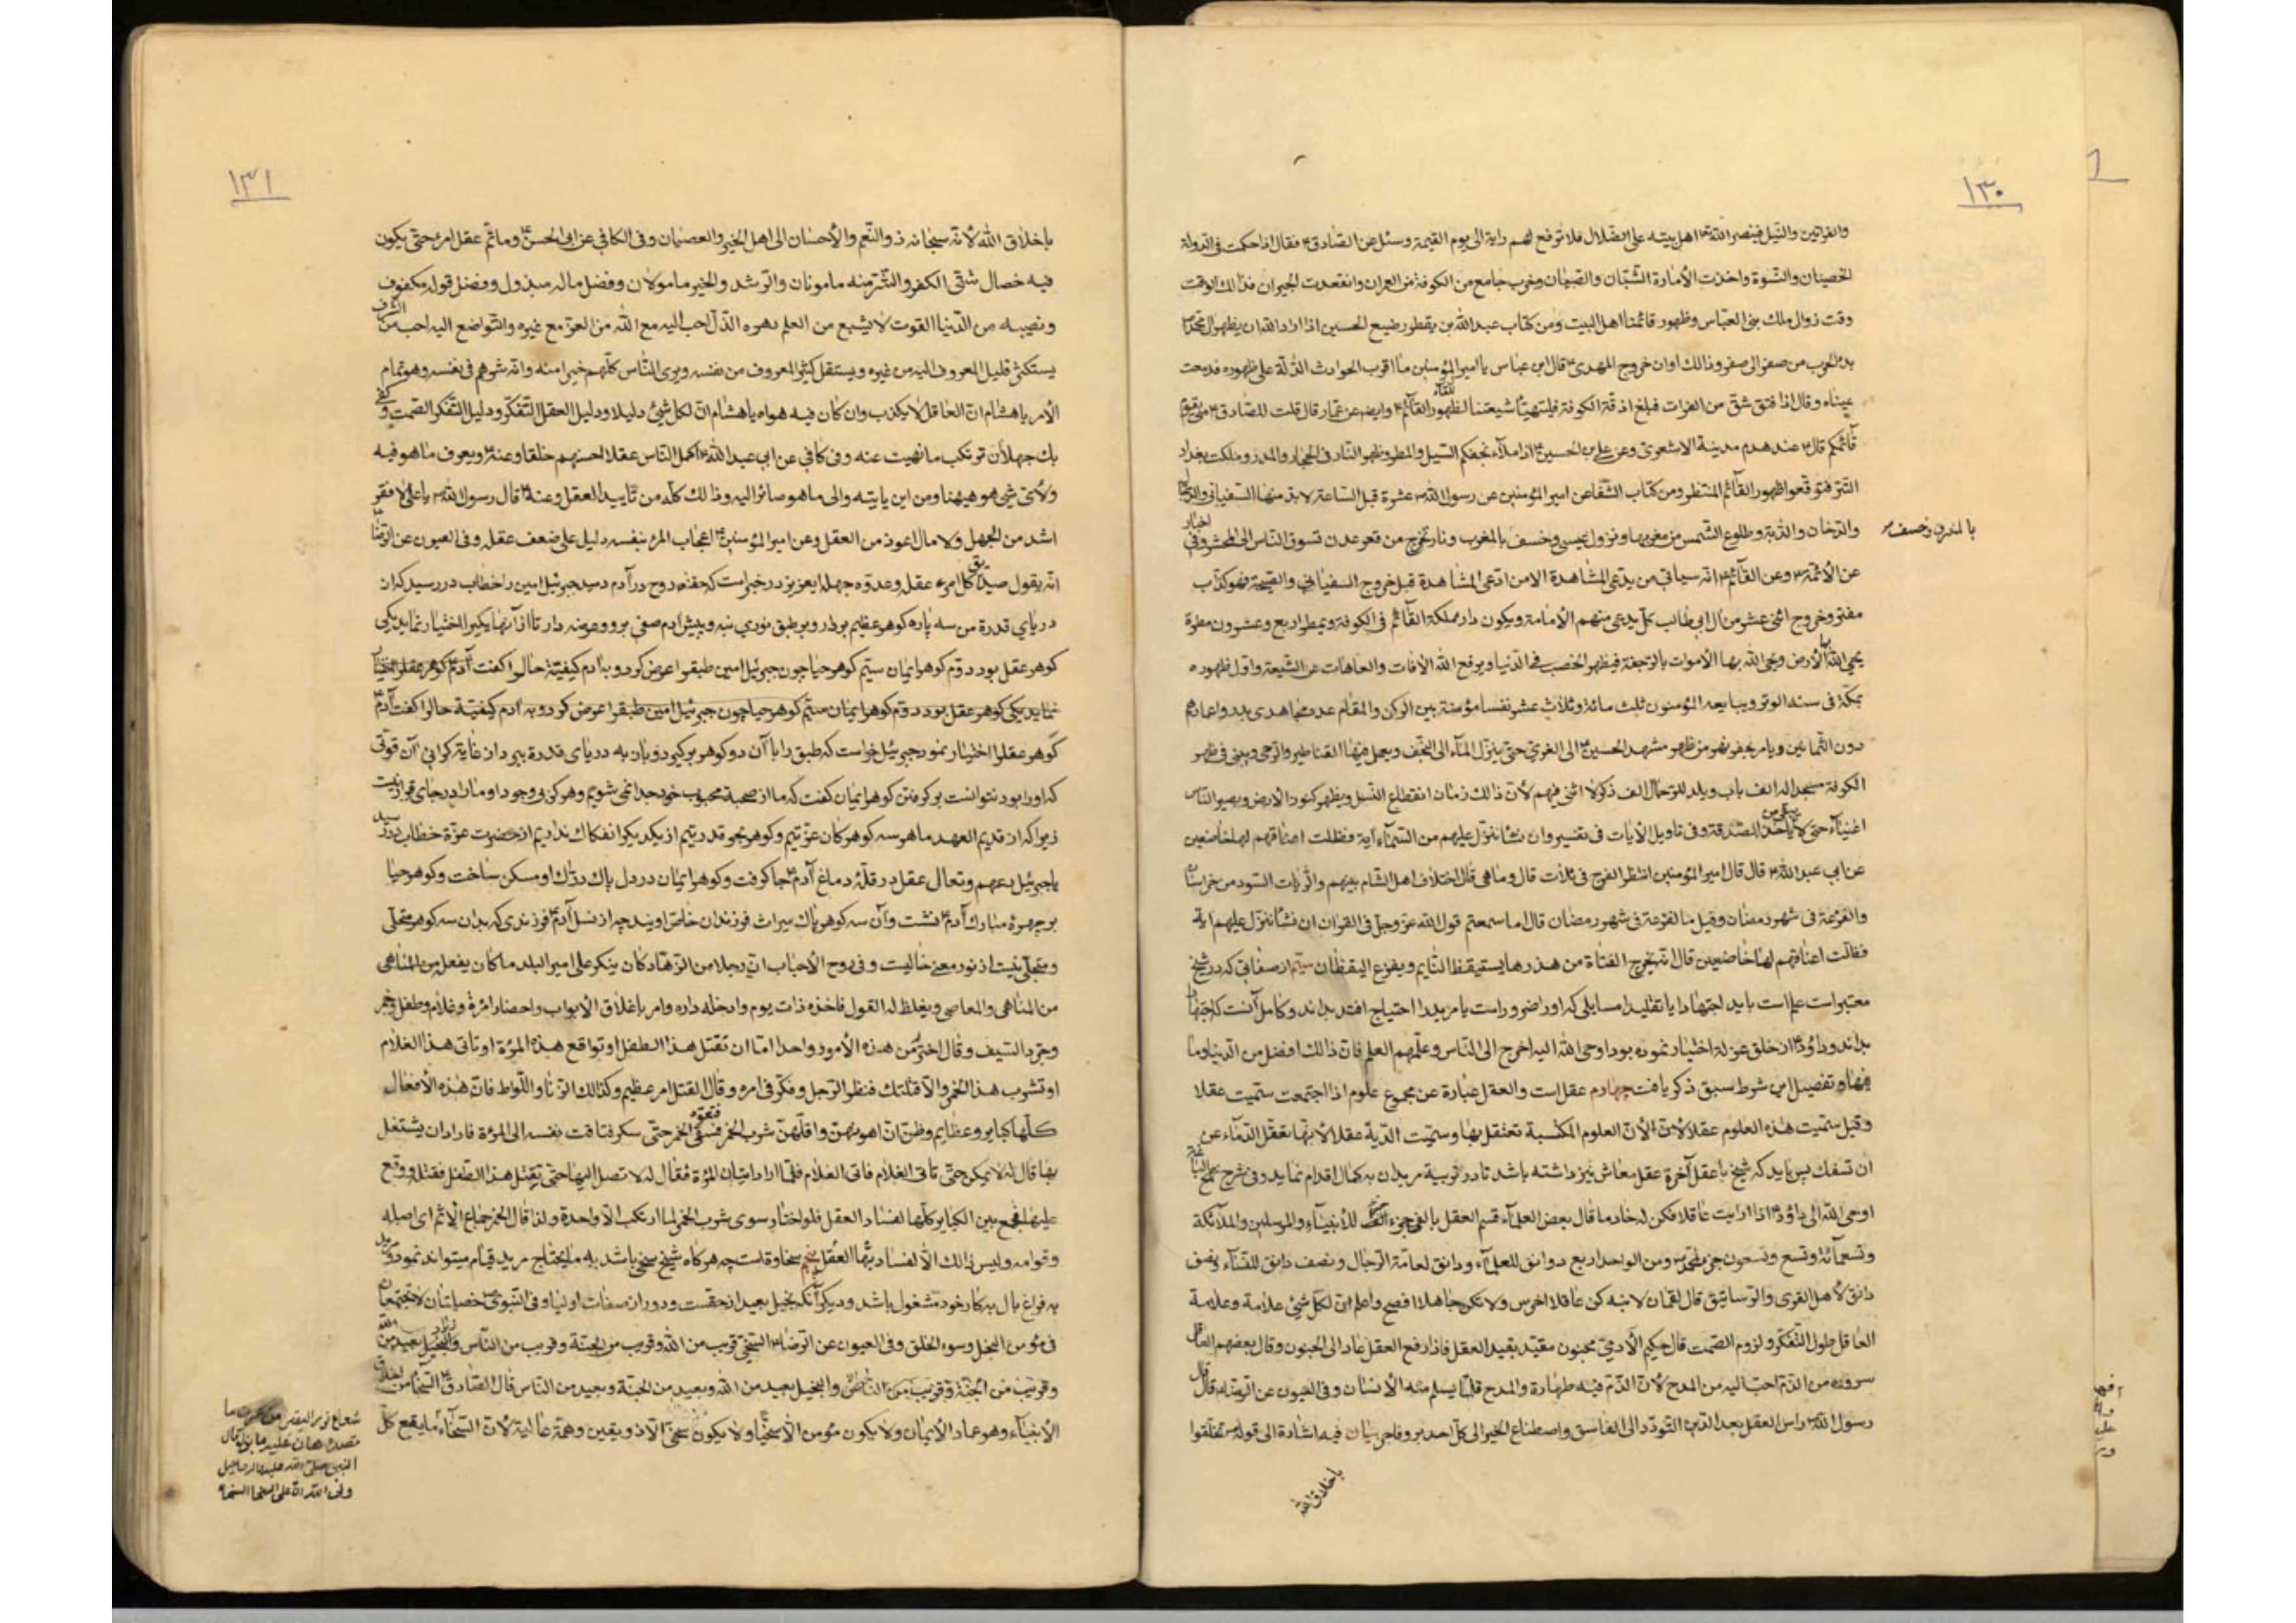 ١٣٠
والفراتين والنيل فينصر الله اهل بيته على الضلال فلا ترفع لهم راية الى يوم القيمة وسئل عن الصادق ع فقال اذا حكمت فى الدولة
الخصيان والنسوة واخذت الأمارة الشبان والصبيان وخرب جامع من الكوفة من العران وانقعدت الجيران فذالك الوقت
وقت زوال ملك بنى العباس وظهور قائمنا اهل البيت ومن كتاب عبد الله بن يقطر رضيع الحسين اذا اراد الله ان يظهر ال محمد
بدء الحرب من صفر الى صفر وذالك اوان خروج المهدى ع قال ابن عباس يا امير المؤمنين ما اقرب الحوادث الدالة على ظهوره فدمعت
عيناه وقال اذا فتق شق من الفرات فبلغ ازقة الكوفة فليتهيأ شيعتنا للقاء القائم ع وايضا عن عمار قال قلت للصادق ع متى يقوم
قائمكم قال ع عند هدم مدينة الاشعرى وعن على بن الحسين ع اذا ملأ نجفكم السيل والمطر وظهر النار فى الحجار والمدر وملكت بغداد
التتر فتوقعوا ظهور القائم المنتظر ومن كتاب الشفا عن امير المؤمنين عن رسول الله عشرة قبل الساعة لا بد منها السفيانى والدجال
والدخان والدابة وطلوع الشمس من مغربها ونزول عيسى وخسف بالمغرب ونار تخرج من قعر عدن تسوق الناس الى المحشر وفى اخبار
بالمشرق وخسف
عن الأئمة ع وعن القائم ع انه سياتى من يدعى المشاهدة الا من ادعى المشاهدة قبل خروج السفيانى والصيحة فهو كذاب
مفتر وخروج اثنى عشر من ال ابى طالب كل يدعى منهم الأمامة ويكون دار مملكة القائم فى الكوفة ويمطر اربع وعشرون مطرة
يحيى الله بها الأرض ويحيى الله بها الأموات بالرجعة فيظهر الخصب فى الدنيا ويرفع الله الأفات والعاهات عن الشيعة واول ظهوره
بمكة فى سنة الوتر ويبايعه المؤمنون ثلث مائة وثلاث عشر نفسا مؤمنة بين الركن والمقام عدد مجاهدى بدر واعمارهم
دون الثمانين ويامر بحفر نهر من ظهر مشهد الحسين ع الى الغرى حتى ينزل الماء الى النجف ويعمل فيها القناطير والرحى ويبنى فى ظهر
الكوفة مسجدا له الف باب ويلد للرجال الف ذكر لا انثى فيهم لأن ذالك زمان انقطاع النسل ويظهر كنوز الارض ويصير الناس
اغنياء حتى لا ياخذ الصدقة وفى تاويل الأيات فى تفسير وان نشأ ننزل عليهم من السماء آية فظلت اعناقهم لها خاضعين
عن ابى عبد الله ع قال قال امير المؤمنين انتظر الفرج فى ثلاث قال وما هى قال اختلاف اهل الشام بينهم والرايات السود من خراسان
والفزعة فى شهر رمضان وقيل ما الفزعة فى شهر رمضان قال اما سمعتم قول الله عز وجل فى القران ان نشأ ننزل عليهم اية
فظلت اعناقهم لها خاضعين قال انه يخرج الفتاة من خدرها يستيقظ النايم ويفزع اليقظان سيم از صفاتى كه در شيخ
معتبر است علم است بايد اجتهادا يا تقليدا مسايلى كه او را ضرور است يا مريد را احتياج افتد بداند وكامل آنست كه اجتهادا
بداند وداود ع از خلق عزلة اختيار نموده بود اوحى الله اليه اخرج الى الناس وعلمهم العلم فان ذالك افضل من الدنيا وما
فيها وتفصيل اين شرط سبق ذكر يافت چهارم عقل است والعقل عبارة عن مجموع علوم اذا اجتمعت سميت عقلا
وقيل سميت هذه العلوم عقلا لأن العلوم المكتسبة تعتقل بها وسميت الدية عقلا لأنها تعقل الدماء عن
ان تسفك پس بايد كه شيخ با عقل آخرة عقل معاش نيز داشته باشد تا در تربية مريدان به كمال اقدام نمايد وفى شرح
اوحى الله الى داود ع اذا رايت عاقلا فكن له خادما قال بعض العلماء قسم العقل بالفى جزء الف للأنبياء والمرسلين والملآئكة
وتسعمائة وتسع وتسعون جزء لمحمد ص ومن الواحد اربع دوانق للعلماء ودانق لعامة الرجال ونصف دانق للنساء ونصف
دانق لأهل القرى والرساتيق قال لقمان لابنه كن عاقلا اخرس ولا تكن جاهلا افصح واعلم ان لكل شئ علامة وعلامة
العاقل طول التفكر ولزوم الصمت قال حكيم الآدمى مجنون مقيد بقيد العقل فاذا رفع العقل عاد الى الجنون وقال بعضهم العاقل
سروره من الذم احب اليه من المدح لأن الذم فيه طهارة والمدح قلما يسلم منه الأنسان وفى العيون عن الرضا ع قال قال
رسول الله ص راس العقل بعد الدين التودد الى الفاسق واصطناع الخير الى كل احد بر وفاجر بيان فيه اشارة الى قوله ص تخلقوا
باخلاق الله
١٣١
باخلاق الله لأنه سبحانه ذو النعم والأحسان الى اهل الخير والعصيان وفى الكافى عن ابى الحسن ع وما تم عقل امرء حتى يكون
فيه خصال شتى الكفر والشر منه مامونان والرشد والخير مامولان وفضل ماله مبذول وفضل قوله مكفوف
ونصيبه من الدنيا القوت لا يشبع من العلم دهره الذل احب اليه مع الله من العز مع غيره والتواضع اليه احب من الشرف
يستكثر قليل المعروف اليه من غيره ويستقل كثير المعروف من نفسه ويرى الناس كلهم خيرا منه وانه شرهم فى نفسه وهو تمام
الأمر يا هشام ان العاقل لا يكذب وان كان فيه هواه يا هشام ان لكل شئ دليلا ودليل العقل التفكر ودليل التفكر الصمت وكفى
بك جهلا أن تركب ما نهيت عنه وفى كافى عن ابى عبد الله ع اكمل الناس عقلا احسنهم خلقا وعنه ع ويعرف ما هو فيه
ولأى شى هو هيهنا ومن اين ياتيه والى ما هو صائر اليه وذالك كله من تاييد العقل وعنه ع قال رسول الله ص يا على لا فقر
اشد من الجهل ولا مال اعود من العقل وعن امير المؤمنين ع اعجاب المرء بنفسه دليل على ضعف عقله وفى العيون عن الرضا ع
انه يقول صديق كل امرء عقله وعدوه جهله ايعزيز در خبر است كه حقه روح در آدم دميد جبرئيل امين را خطاب در رسيد كه از
درياى قدرة من سه پاره كوهر عظيم بردار وبر طبق نورى بنه وپيش آدم صفى برو وعرضه دار تا از آنها يكيرا اختيار نمايد يكى
كوهر عقل بود دوم كوهر ايمان سيم كوهر حيا چون جبرئيل امين طبقرا عرض كرد وبه آدم كيفية حالرا كفت آدم ع كوهر عقلرا اختيار
نمايد يكى كوهر عقل بود دوم كوهر ايمان سيم كوهر حيا چون جبرئيل امين طبقرا عرض كرد وبه آدم كيفية حالرا كفت آدم ع
كوهر عقلرا اختيار نمود جبرئيل خواست كه طبق را با آن دو كوهر بركيرد وباز به درياى قدرة ببرد از غاية كرانى آن قوتى
كه او را بود نتوانست بر كرفتن كوهر ايمان كفت كه ما از صحبة محبوب خود جدا نمى شويم وهر كز بى وجود او ما را در جاى قرار نيست
زيرا كه از قديم العهد ما هر سه كوهر كان عزتيم وكوهر بحر قدرتيم از يكديكر انفكاك نداريم از حضرت عزة خطاب در رسيد
يا جبرئيل دعهم وتعال عقل در قله دماغ آدم ع جا كرفت وكوهر ايمان در دل پاك دراك او مسكن ساخت وكوهر حيا
بر چهرۀ مبارك آدم ع نشست وآن سه كوهر پاك ميراث فرزندان خاص اويند چه از نسل آدم فرزندى كه بدان سه كوهر متحلى
ومتجلى نيست از نور معنى خاليست وفى روح الأحباب ان رجلا من الزهاد كان ينكر على امير البلد ما كان يفعل من المناهى
من المناهى والمعاصى ويغلظ له القول فاخذه ذات يوم وادخله داره وامر باغلاق الأبواب واحضار امرءة وغلام وطفل وخمر
وجرد السيف وقال اختر من هذه الأمور واحدا اما ان تقتل هذا الطفل او تواقع هذه المرءة او تاتى هذا الغلام
او تشرب هذا الخمر والا قتلتك فنظر الرجل وفكر فى امره وقال القتل امر عظيم وكذالك الزنا واللواط فان هذه الأفعال
كلها كباير وعظايم وظن ان اهونهن واقلهن شرب الخمر فسقى الخمر حتى سكر فتاقت نفسه الى المرءة فاراد ان يشتغل
بها قال له لا يمكن حتى تاتى الغلام فاتى الغلام فلما اراد اتيان المرءة فقال له لا تصل اليها حتى تقتل هذا الطفل فقتله ووقع
عليها فجمع بين الكباير كلها لفساد العقل فلو اختار سوى شرب الخمر لما ارتكب الا واحدة ولذا قال الخمر جماع الأثم اى اصله
وقوامه وليس ذالك الا لفساد بها العقل پنجم سخاوتست چه هر كاه شيخ سخى باشد به مايحتاج مريد قيام ميتواند نمود ومريد
به فراغ بال به كار خود مشغول باشد وديكر آنكه بخيل بعيد از حقست ودور از صفات اوليا وفى النبوى ص خصلتان لا تجتمعان
فى مؤمن البخل وسوء الخلق وفى العيون عن الرضا ع السخى قريب من الله وقريب من الجنة وقريب من الناس والبخيل بعيد من الله
وقريب من الجنة وقريب من الناس والبخيل بعيد من الله وبعيد من الجنة وبعيد من الناس قال الصادق ع السخا من اخلاق
الأنبياء وهو عماد الأيمان ولا يكون مؤمن الا سخيا ولا يكون سخى الا ذو يقين وهمة عالية لأن السخاء
شعاع نور اليقين من عرف ما
قصد هان عليه ما بذل وقال
النبى صلى الله عليه واله ما جبل
ولى الله الا على السخا السخاء